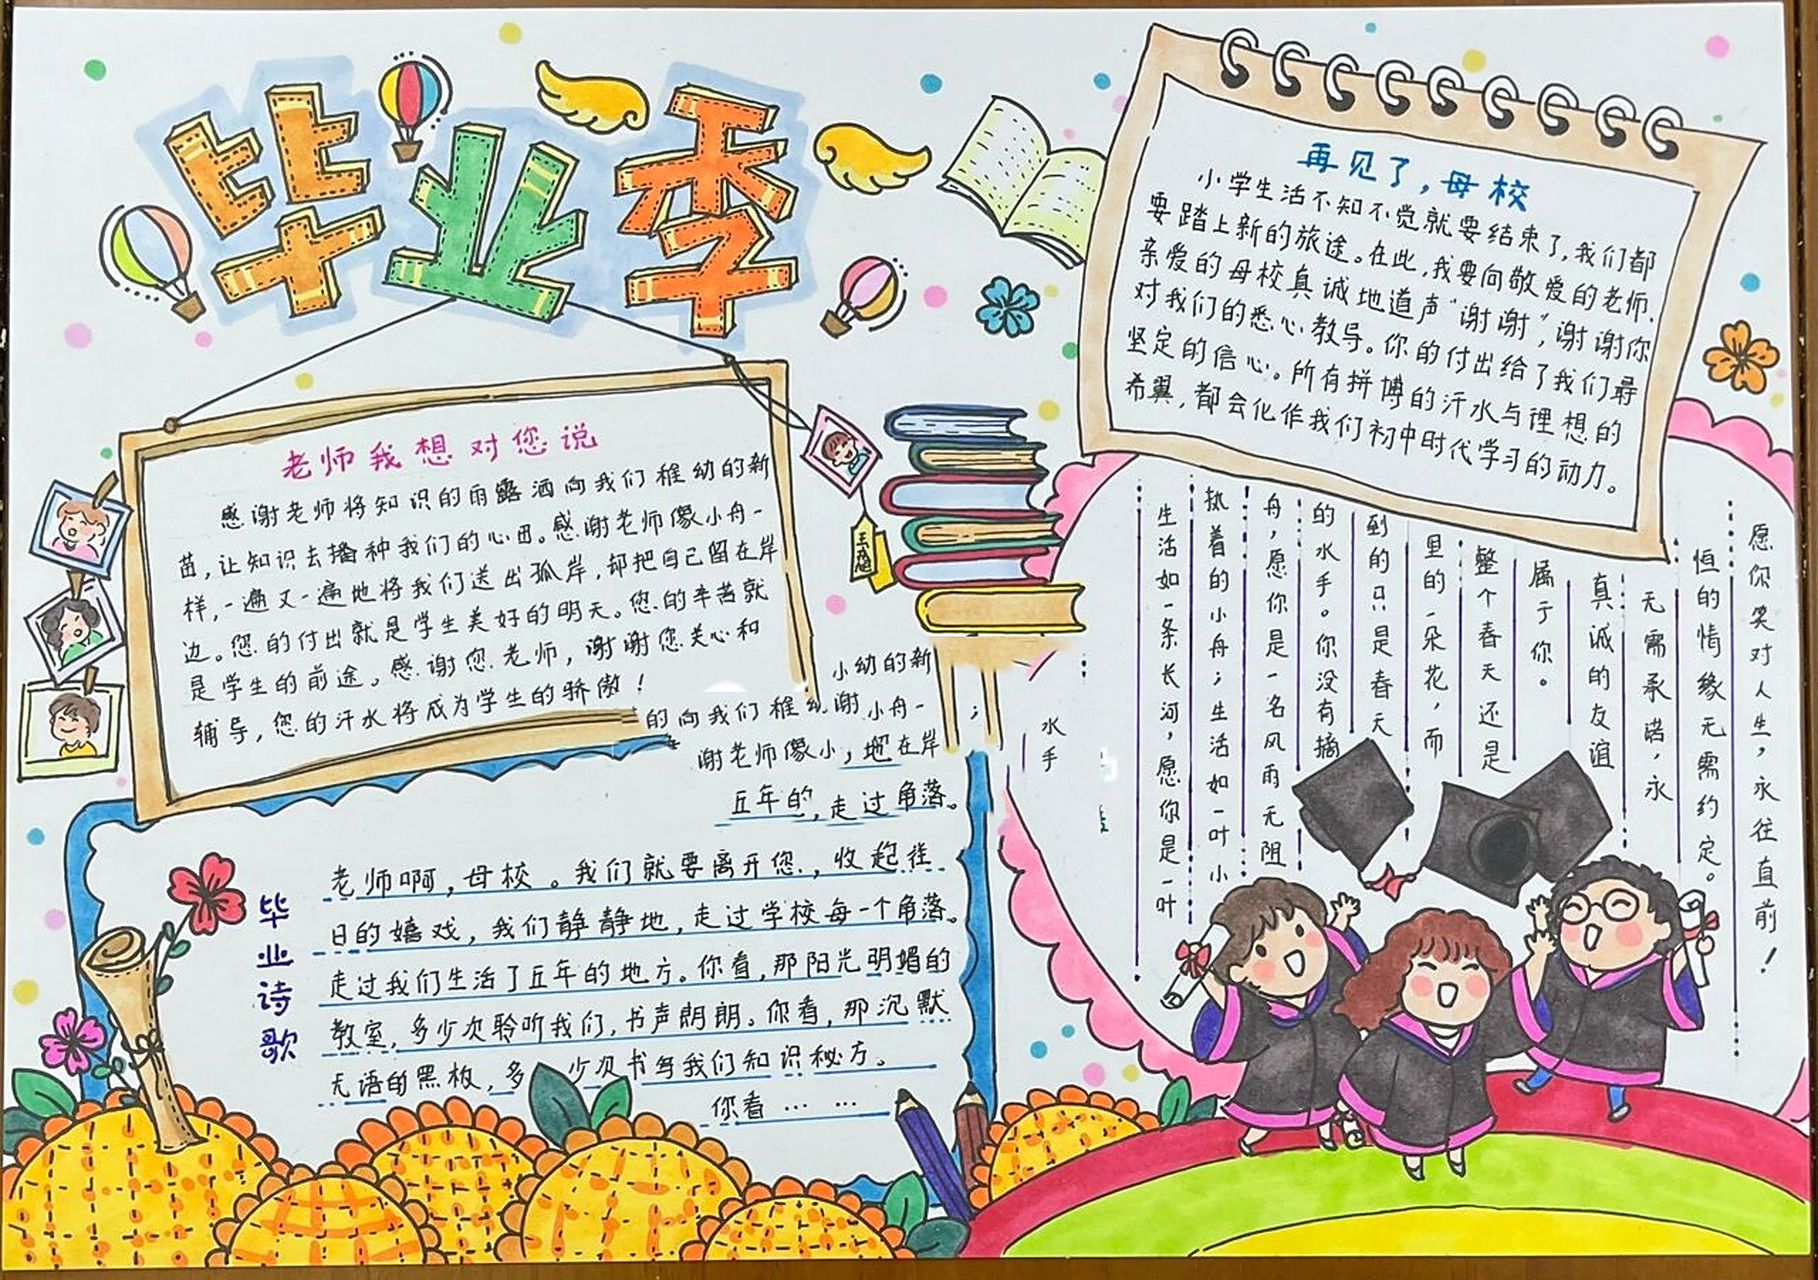 毕业季
老师我想对您说
感谢老师将知识的雨露洒向我们稚幼的新
苗,让知识去播种我们的心田。感谢老师像小舟一
样,一遍又一遍地将我们送出孤岸,却把自己留在岸
边。您的付出就是学生美好的明天。您的辛苦就
是学生的前途。感谢您老师,谢谢您关心和
辅导,您的汗水将成为学生的骄傲!
小幼的新
的向我们稚幼谢小舟一
谢老师像小,地在岸
五年的,走过角落。
毕业诗歌
老师啊,母校。我们就要离开您,收起往
日的嬉戏,我们静静地,走过学校每一个角落。
走过我们生活了五年的地方。你看,那阳光明媚的
教室,多少次聆听我们,书声朗朗。你看,那沉默
无语的黑板,多少次书写我们知识秘方。
你看… …
再见了,母校
小学生活不知不觉就要结束了,我们都
要踏上新的旅途。在此,我要向敬爱的老师.
亲爱的母校真诚地道声“谢谢”,谢谢你
对我们的悉心教导。你的付出给了我们最
坚定的信心。所有拼搏的汗水与理想的
希翼,都会化作我们初中时代学习的动力。
愿你笑对人生,永往直前!
恒的情缘无需约定。
无需承诺,永
真诚的友谊
属于你。
整个春天还是
里的一朵花,而
到的只是春天
的水手。你没有摘
舟,愿你是一名风雨无阻
执着的小舟;生活如一叶小
生活如一条长河,愿你是一叶
水手
;